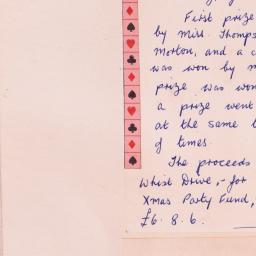 First prize
by Miss. Thomps
Morton, and a c
was won by m
prize was won
a prize went
at the same t
of times.
The proceeds
Whist Drive,- for
Xmas Party Fund,
£6. 8. 6.